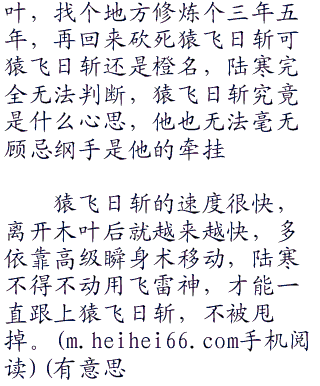 叶，找个地方修炼个三年五
年，再回来砍死猿飞日斩可
猿飞日斩还是橙名，陆寒完
全无法判断，猿飞日斩究竟
是什么心思，他也无法毫无
顾忌纲手是他的牵挂
猿飞日斩的速度很快，
离开木叶后就越来越快，多
依靠高级瞬身术移动，陆寒
不得不动用飞雷神，才能一
直跟上猿飞日斩，不被甩
掉。(m.heihei66.com手机阅
读)(有意思